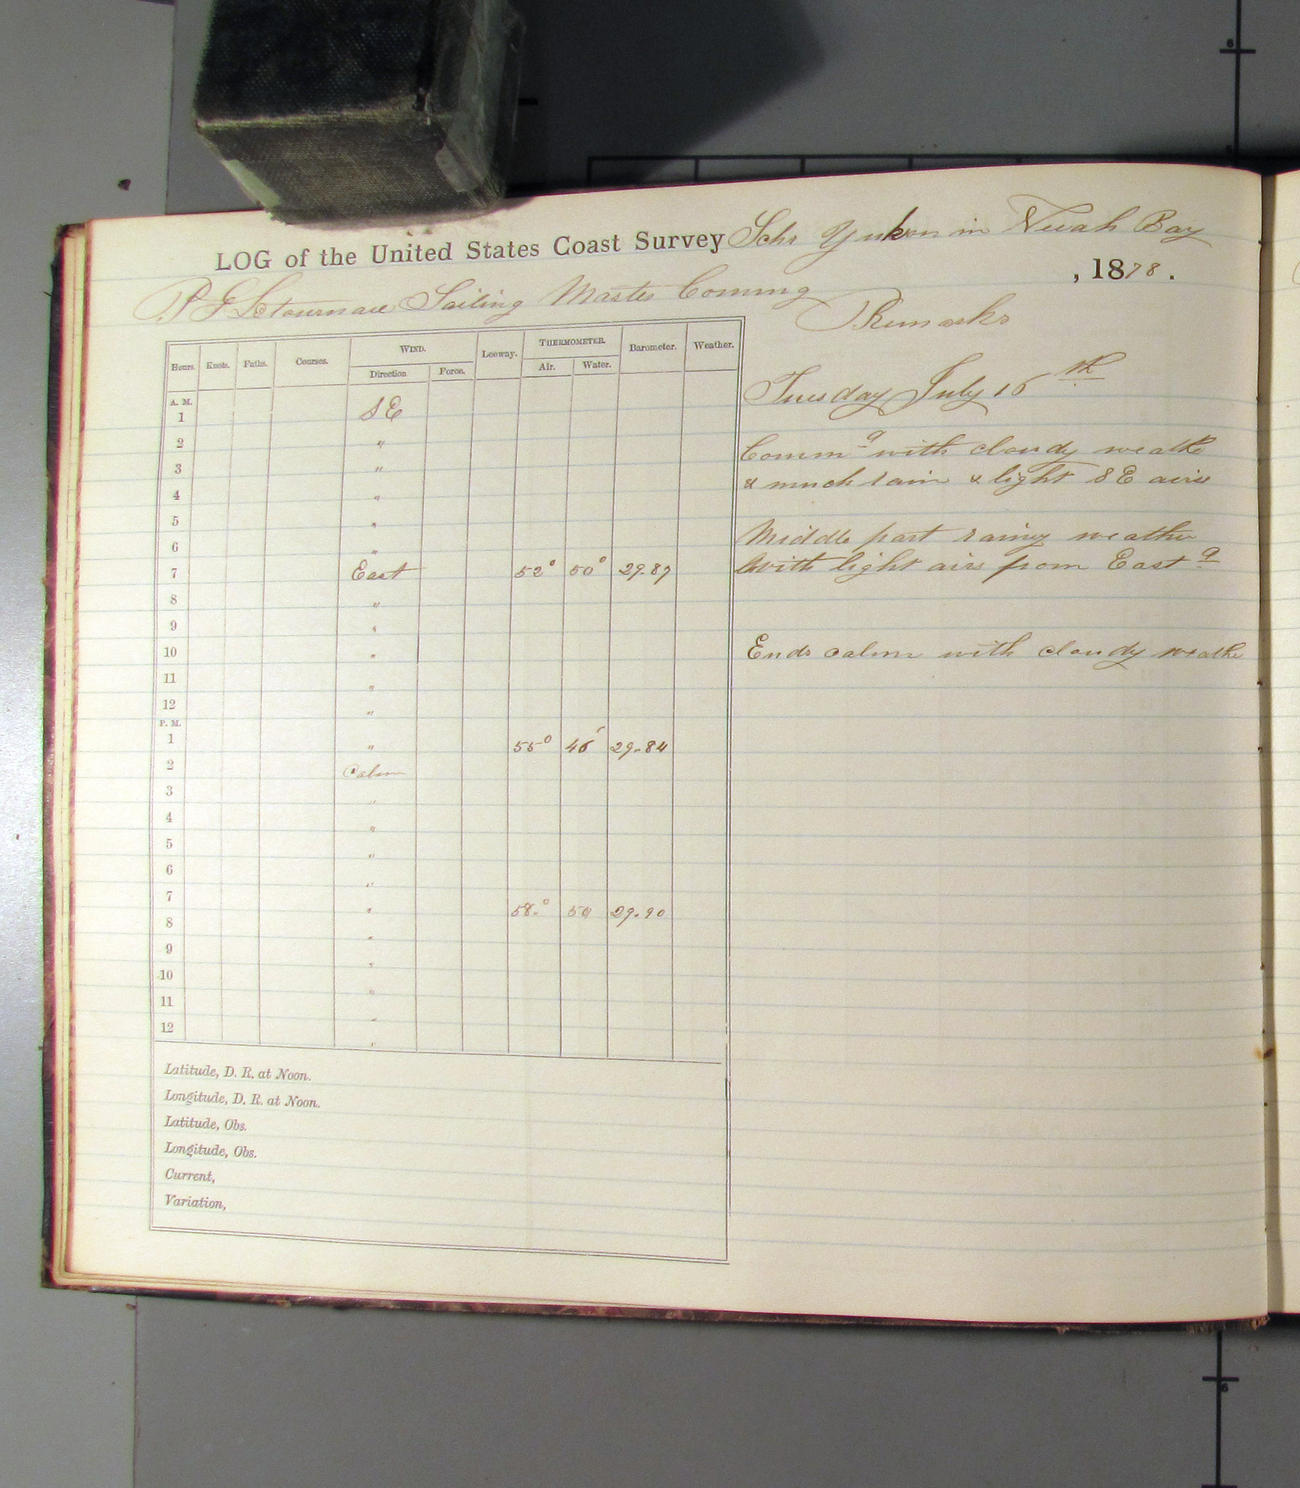 LOG of the United States Coast Survey Schr Yukon in Neah Bay
, 1878.
Sailing Master Coming
Remarks
Hours. Knots. Faths. Courses. WIND. Leeway. THERMOMETER. Barometer. Weather.
Direction Force. Air. Water.
Tuesday July 16th
A. M.
1 SE
2 "
3 "
4 "
5 "
6 "
7 East 52° 50° 29.87
8 "
9 "
10 "
11 "
12 "
P. M.
1 " 55° 29.84
2 Calm
3 "
4 "
5 "
6 "
7 "
8 " 58.° 50 29.90
9 "
10 "
11 "
12 "
"
Comm g with cloudy weathe
& much rain & light SE airs
Middle part rainy weather
With light airs from East g
Ends calm with cloudy weathe
Latitude, D. R. at Noon.
Longitude, D. R. at Noon.
Latitude, Obs.
Longitude, Obs.
Current,
Variation,
6
6